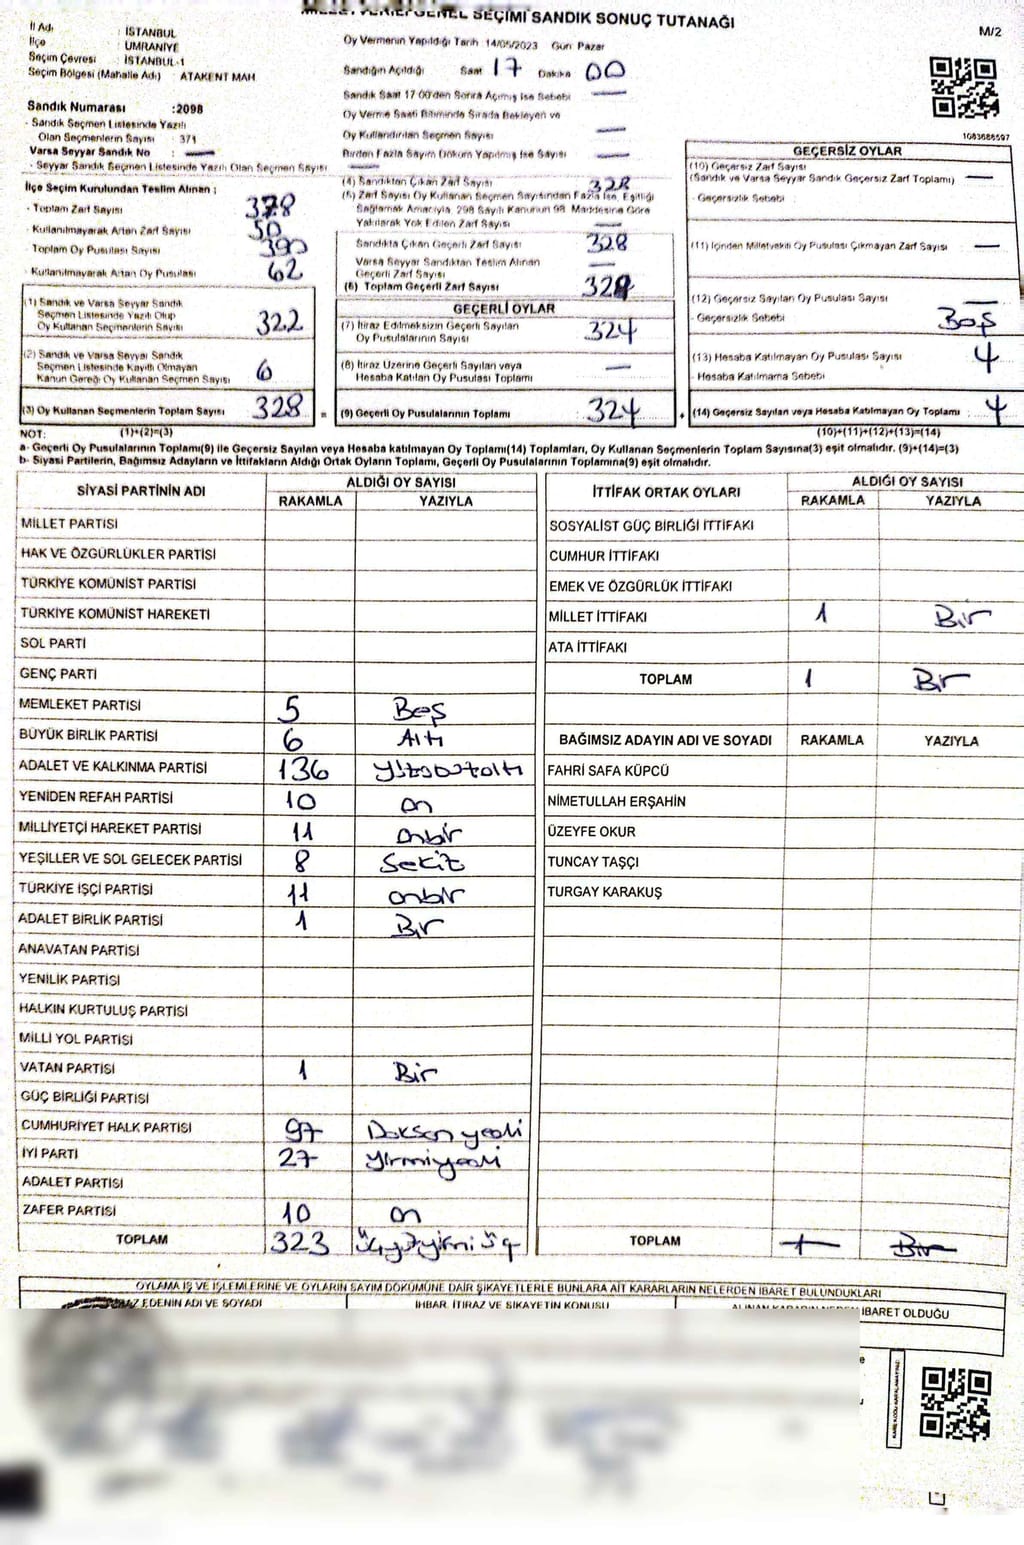 MİLLETVEKİLİ GENEL SEÇİMİ SANDIK SONUÇ TUTANAĞI
M/2
İl Adı : İSTANBUL
İlçe : ÜMRANİYE
Seçim Çevresi : İSTANBUL-1
Seçim Bölgesi (Mahalle Adı) : ATAKENT MAH
Sandık Numarası :2098
- Sandık Seçmen Listesinde Yazılı
Olan Seçmenlerin Sayısı : 371
Varsa Seyyar Sandık No : —
- Seyyar Sandık Seçmen Listesinde Yazılı Olan Seçmen Sayısı : —
İlçe Seçim Kurulundan Teslim Alınan :
- Toplam Zarf Sayısı 378
- Kullanılmayarak Artan Zarf Sayısı 50
Toplam Oy Pusulası Sayısı 390
- Kullanılmayarak Artan Oy Pusulası 62
(1) Sandık ve Varsa Seyyar Sandık
Seçmen Listesinde Yazılı Olup
Oy Kullanan Seçmenlerin Sayısı 322
(2) Sandık ve Varsa Seyyar Sandık
Seçmen Listesinde Kayıtlı Olmayan
Kanun Gereği Oy Kullanan Seçmen Sayısı 6
(3) Oy Kullanan Seçmenlerin Toplam Sayısı 328 =
Oy Vermenin Yapıldığı Tarih 14/05/2023 Gün Pazar
Sandığın Açıldığı Saat 17 Dakika 00
Sandık Saat 17:00'den Sonra Açılmış İse Sebebi —
Oy Verme Saati Bitiminde Sırada Bekleyen ve
Oy Kullandırılan Seçmen Sayısı —
Birden Fazla Sayım Döküm Yapılmış İse Sayısı —
(4) Sandıktan Çıkan Zarf Sayısı 328
(5) Zarf Sayısı Oy Kullanan Seçmen Sayısından Fazla İse, Eşitliği
Sağlamak Amacıyla, 298 Sayılı Kanunun 98. Maddesine Göre
Yakılarak Yok Edilen Zarf Sayısı —
Sandıkta Çıkan Geçerli Zarf Sayısı 328
Varsa Seyyar Sandıktan Teslim Alınan
Geçerli Zarf Sayısı —
(6) Toplam Geçerli Zarf Sayısı 328
GEÇERLİ OYLAR
(7) İtiraz Edilmeksizin Geçerli Sayılan
Oy Pusulalarının Sayısı 324
(8) İtiraz Üzerine Geçerli Sayılan veya
Hesaba Katılan Oy Pusulası Toplamı —
(9) Geçerli Oy Pusulalarının Toplamı 324 +
1083686597
GEÇERSİZ OYLAR
(10) Geçersiz Zarf Sayısı
(Sandık ve Varsa Seyyar Sandık Geçersiz Zarf Toplamı) —
- Geçersizlik Sebebi
(11) İçinden Milletvekili Oy Pusulası Çıkmayan Zarf Sayısı —
(12) Geçersiz Sayılan Oy Pusulası Sayısı —
- Geçersizlik Sebebi : Boş
(13) Hesaba Katılmayan Oy Pusulası Sayısı : 4
- Hesaba Katılmama Sebebi
(14) Geçersiz Sayılan veya Hesaba Katılmayan Oy Toplamı : 4
NOT: (1)+(2)=(3) (10)+(11)+(12)+(13)=(14)
a- Geçerli Oy Pusulalarının Toplamı(9) ile Geçersiz Sayılan veya Hesaba katılmayan Oy Toplamı(14) Toplamları, Oy Kullanan Seçmenlerin Toplam Sayısına(3) eşit olmalıdır. (9)+(14)=(3)
b- Siyasi Partilerin, Bağımsız Adayların ve İttifakların Aldığı Ortak Oyların Toplamı, Geçerli Oy Pusulalarının Toplamına(9) eşit olmalıdır.
SİYASİ PARTİNİN ADI ALDIĞI OY SAYISI
RAKAMLA YAZIYLA
MİLLET PARTİSİ
HAK VE ÖZGÜRLÜKLER PARTİSİ
TÜRKİYE KOMÜNİST PARTİSİ
TÜRKİYE KOMÜNİST HAREKETİ
SOL PARTİ
GENÇ PARTİ
MEMLEKET PARTİSİ 5 Beş
BÜYÜK BİRLİK PARTİSİ 6 Altı
ADALET VE KALKINMA PARTİSİ 136
YENİDEN REFAH PARTİSİ 10 on
MİLLİYETÇİ HAREKET PARTİSİ 11 onbir
YEŞİLLER VE SOL GELECEK PARTİSİ 8 Sekiz
TÜRKİYE İŞÇİ PARTİSİ 11 onbir
ADALET BİRLİK PARTİSİ 1 Bir
ANAVATAN PARTİSİ
YENİLİK PARTİSİ
HALKIN KURTULUŞ PARTİSİ
MİLLİ YOL PARTİSİ
VATAN PARTİSİ 1 Bir
GÜÇ BİRLİĞİ PARTİSİ
CUMHURİYET HALK PARTİSİ 97 Doksan yedi
İYİ PARTİ 27 yirmiyedi
ADALET PARTİSİ
ZAFER PARTİSİ 10 on
TOPLAM 323 üçyüzyirmi üç
İTTİFAK ORTAK OYLARI ALDIĞI OY SAYISI
RAKAMLA YAZIYLA
SOSYALİST GÜÇ BİRLİĞİ İTTİFAKI
CUMHUR İTTİFAKI
EMEK VE ÖZGÜRLÜK İTTİFAKI
MİLLET İTTİFAKI 1 Bir
ATA İTTİFAKI
TOPLAM 1 Bir
BAĞIMSIZ ADAYIN ADI VE SOYADI RAKAMLA YAZIYLA
FAHRİ SAFA KÜPCÜ
NİMETULLAH ERŞAHİN
ÜZEYFE OKUR
TUNCAY TAŞÇI
TURGAY KARAKUŞ
TOPLAM 1 Bir
OYLAMA İŞ VE İŞLEMLERİNE VE OYLARIN SAYIM DÖKÜMÜNE DAİR ŞİKAYETLERLE BUNLARA AİT KARARLARIN NELERDEN İBARET BULUNDUKLARI
EDENİN ADI VE SOYADI İHBAR, İTİRAZ VE ŞİKAYETİN KONUSU ALINAN KARARIN NEDEN İBARET OLDUĞU